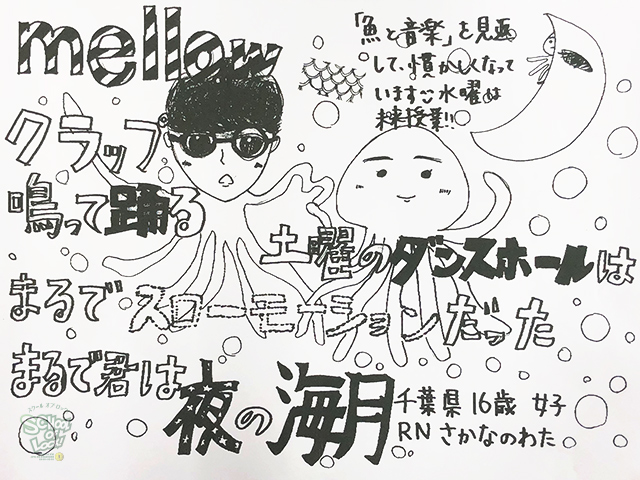 mellow
「魚と音楽」を見返
して、懐かしくなって
います 水曜は
授業!!
クラップ
鳴って踊る
土曜のダンスホールは
まるでスローモーションだった
まるで君は夜の海月
千葉県 16歳 女子
RN さかなのわた
School of Lock!